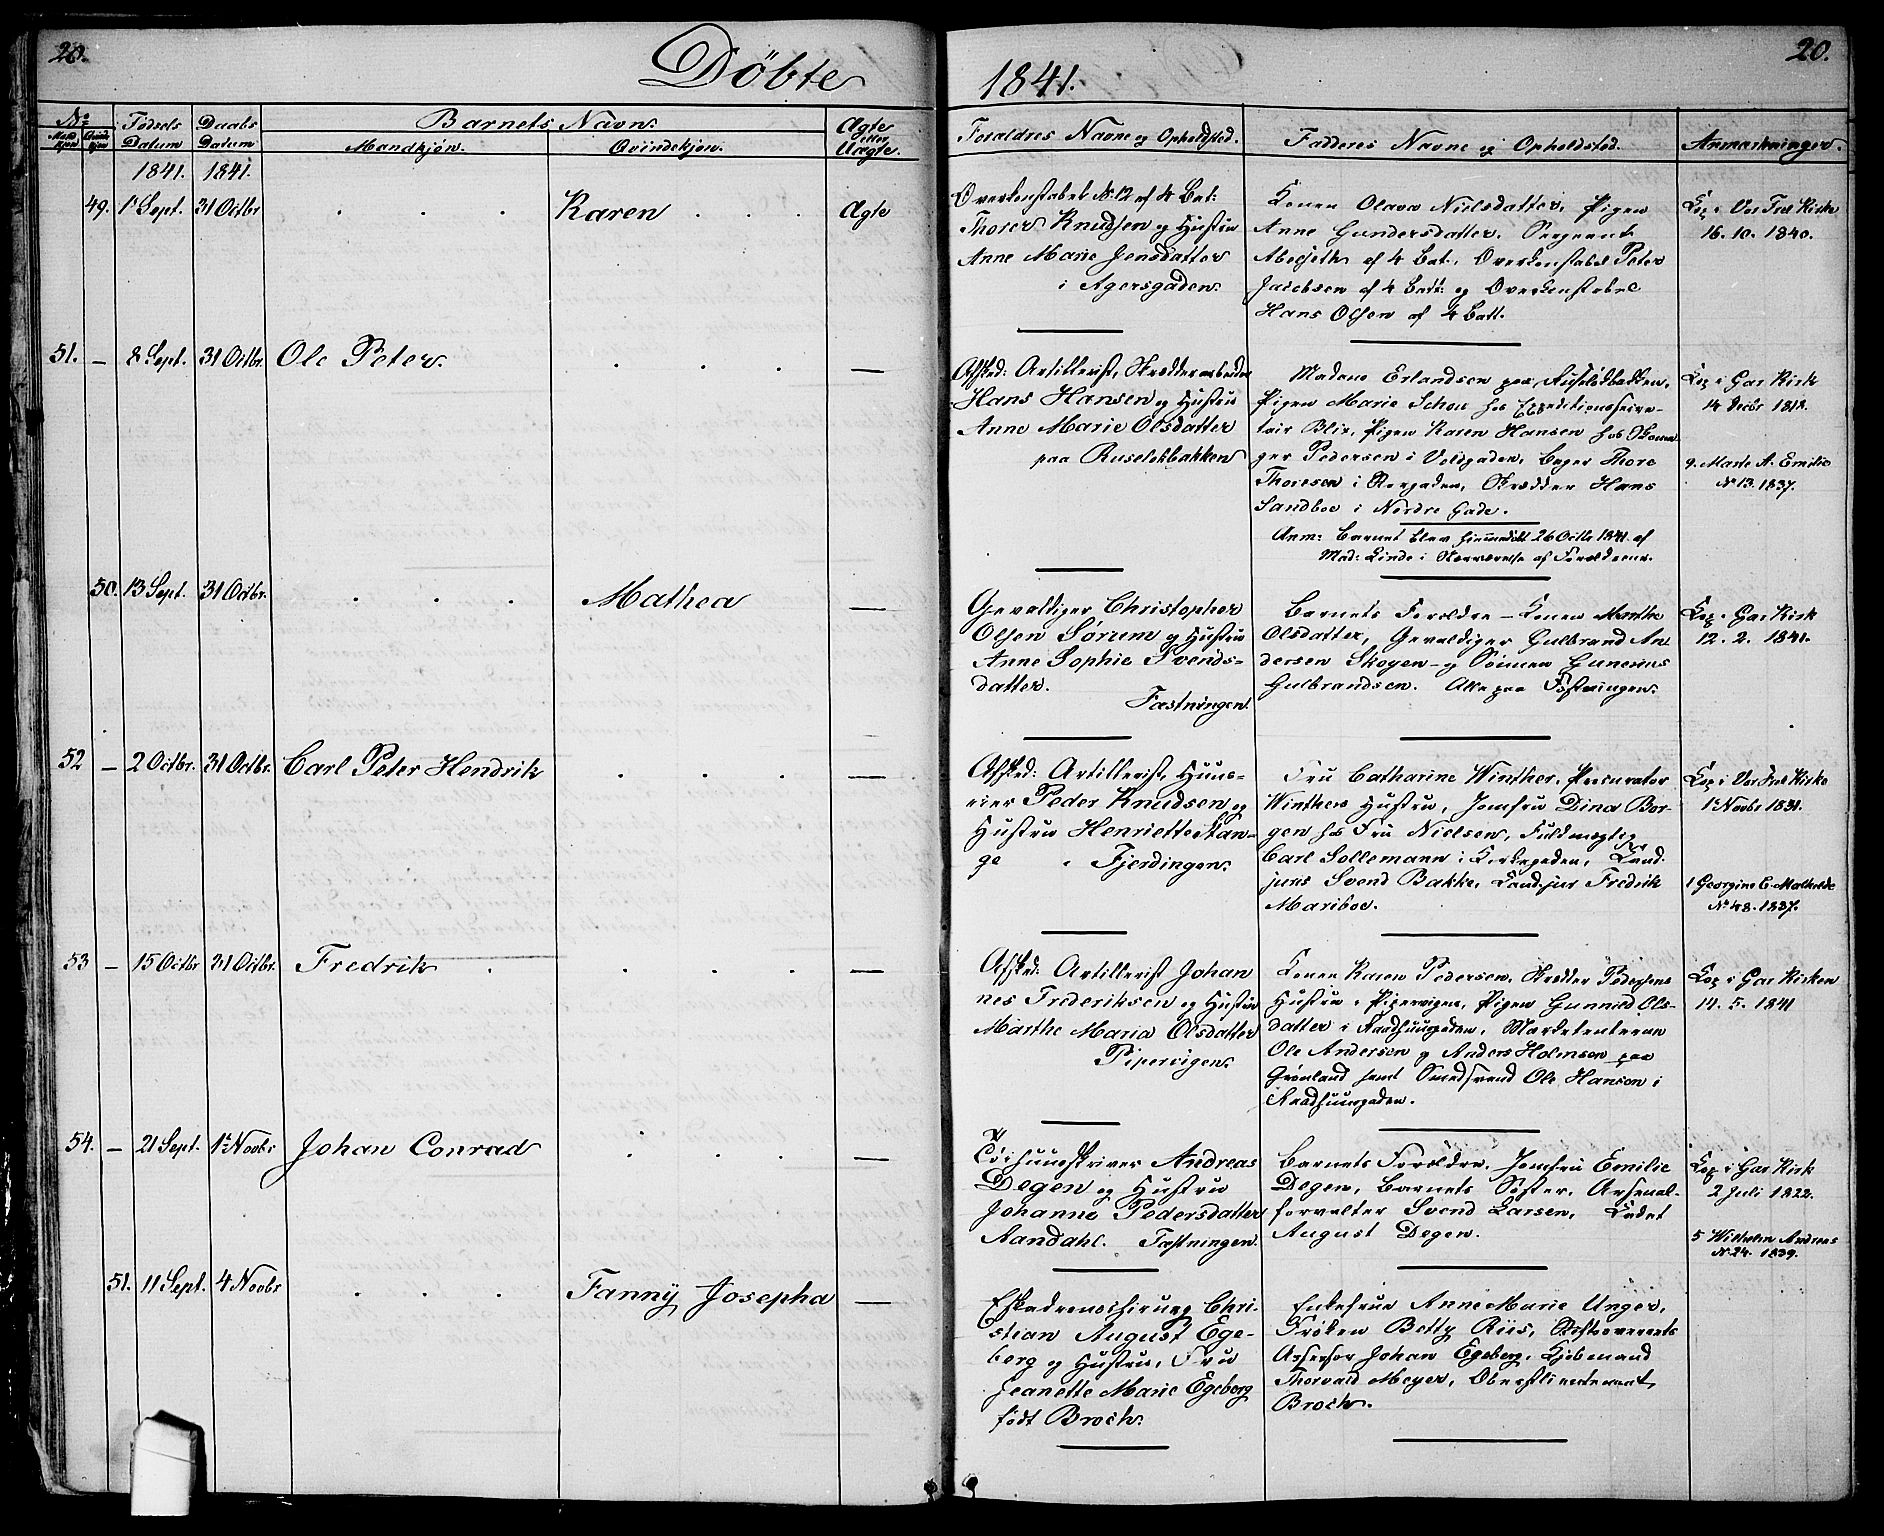 20.
Döbte
1841.
20.
No
Mand kjön
Qvinde kjön
Födsels Datum
Daabs Datum
Barnets Navn.
Mandkjön.
Qvindekjön.
Ægte eller Uægte.
Forældres Navne og Opholdsted.
Fadderes Navne og Opholdsted.
Anmærkninger.
1841. 1841.
49. 1 Sept. 31 Octbr
Karen
Ægte
Overkonstabel N: 12 af 4 Bat:
Thorer Knudsen og Hustru
Anne Marie Jensdatter
i Agersgaden.
Konen Olava Nielsdatter, Pigen
Anne Gundersdatter, Sergeant
af 4 Bat., Overkonstabel Peter
Jacobsen af 4 Batt: og Overkonstabel
Hans Olsen af 4 Batt.
Cop. i Vor Frel Kirke
16. 10. 1840.
51. — 8 Sept. 31 Octbr.
Ole Peter.
—
Afsked: Artillerist, Skrædderarbeider
Hans Hansen og Hustru
Anne Marie Olsdatter
paa Ruselökbakken
Madame Erlandsen paa Ruselökbakken,
Pigen Marie Schou hos Expeditionssecre-
tair Blix, Pigen Karen Hansen hos Skoma
ger Pedersen i Voldgaden, Bager Thore
Thoresen i Storgaden, Skrædder Hans
Sandboe i Nordre Gade.
Anm: Barnet blev hjemmedöbt 26 Octbr 1841 af
Mad: Linde i Nærværelse af Forældrene.
Cop i Gar Kirk
14 Decbr 1812.
9. Marie A. Emilie
No 13. 1837.
50. 13 Sept. 31 Octbr.
Mathea
—
Gevaldiger Christopher
Olsen Sörum og Hustru
Anne Sophie Svends-
datter.
Fæstningen.
Barnets Forældre — Konen Marthe
Olsdatter, Gevaldiger Gulbrand An
dersen Skoyen og Gunerius
Gulbrandsen. Alle paa Fæstningen.
Cop i Gar Kirk
12. 2. 1841.
52 — 2 Octbr. 31 Octbr.
Carl Peter Hendrik
—
Afsked: Artillerist, Huus-
eier Peder Knudsen og
Hustru Henriette Stan-
ge i Fjerdingen.
Fru Catharine Winther, Procurator
Winthers Hustru, Jomfru Dina Bor-
gen hos Fru Nielsen, Fuldmægtig
Carl Sollemann i Kirkegaden, Cand.
juris Svend Bakke, Cand. jur Fredrik
Mariboe.
Cop i Vor Frel Kirke
1 Novbr 1831.
1 Georgine C. Mathilde
No 48. 1837.
53 — 15 Octbr 31 Octbr.
Fredrik
—
Afsked: Artillerist Johan
nes Frederiksen og Hustru
Marthe Maria Olsdatter
Pipervigen.
Konen Karen Pedersen, Skrædder Pedersens
Hustru i Pipervigen, Pigen Gunnild Ols-
datter i Raadhuusgaden, Marketenterne
Ole Andersen og Anders Holmsen paa
Grönland samt Smedsvend Ole Hansen i
Raadhuusgaden.
Cop i Gar Kirken
14. 5. 1841
54. — 21 Sept. 1 Novbr
Johan Conrad
—
Töihuusskriver Andreas
Degen og Hustru
Johanne Pedersdatter
Aandahl. Fæstningen.
Barnets Forældre, Jomfru Emilie
Degen, Barnets Söster, Arsenal-
forvalter Svend Larsen, Cadet
August Degen.
Cop i Gar Kirk
2 Juli 1822.
5 Wilhelm Andreas
No 24. 1839.
51. 11 Sept. 4 Novbr
Fanny Josepha
—
Eskadronschirurg Chri-
stian August Ege-
berg og Hustru, Fru
Jeanette Marie Egeberg
födt Broch.
Enkefrue Anne Marie Unger,
Fröken Betty Riis, Stiftsoverrets
Assessor Johan Egeberg, Kjöbmand
Thorvald Meyer, Oberstlieutenant,
Broch.